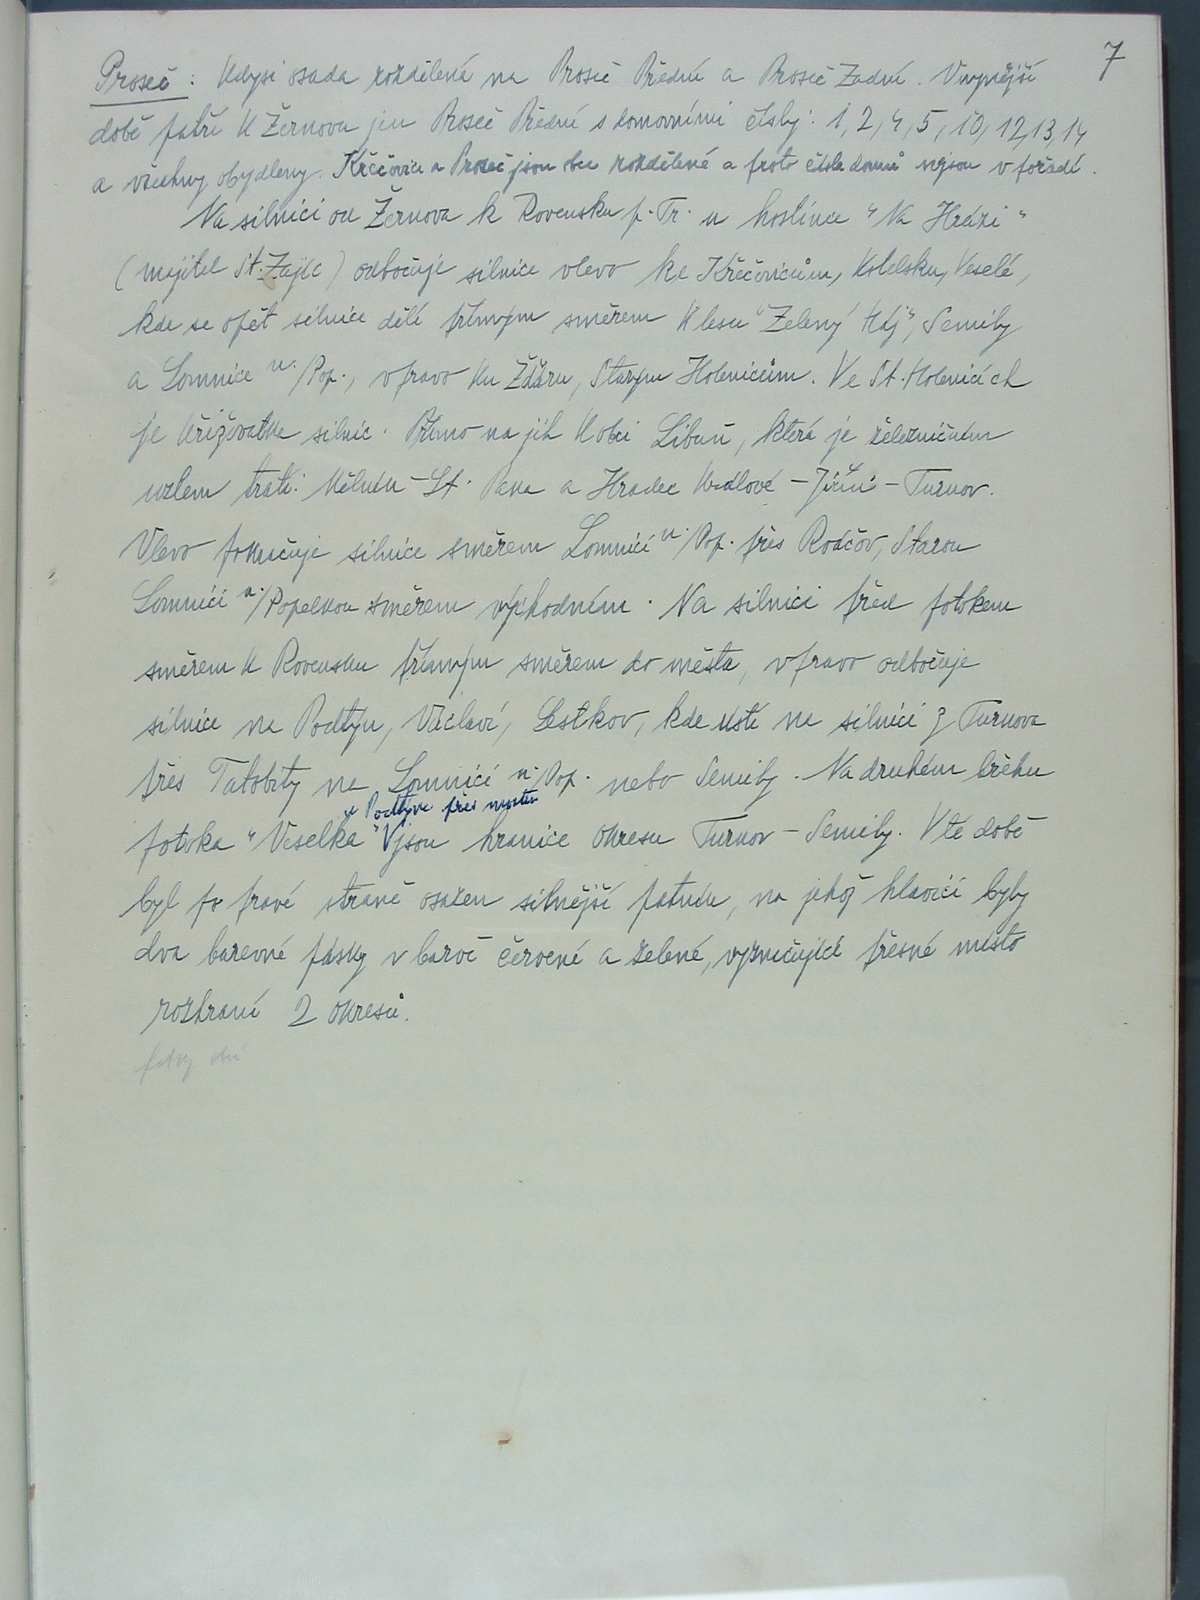 7
Proseč : Kdysi osada rozdělená na Proseč Přední a Proseč Zadní. V nynější
době patří k Žernovu jen Proseč Přední s domovními čísly: 1, 2, 4, 5, 10, 12, 13, 14
a všechny obydleny. Křečovice a Proseč jsou obce rozdělené a proto čísla domů nejsou v pořadí.
Na silnici od Žernova k Rovensku p. Tr. u hostince "Na Hrázi"
(majitel St. Zajíc) odbočuje silnice vlevo ke Křečovicům, Kotelsku, Veselé,
kde se opět silnice dělí přímým směrem k lesu "Zelený Háj", Semily
a Lomnice n./Pop., vpravo ku Žďáru, Starým Holenicům. Ve St. Holenicích
je křižovatka silnic. Přímo na jih k obci Libuň, která je železničním
uzlem tratí: Mělník - St. Paka a Hradec Králové - Jičín - Turnov.
Vlevo pokračuje silnice směrem Lomnici n./Pop. přes Rváčov, Starou
Lomnici n./Popelkou směrem východním. Na silnici před potokem
směrem k Rovensku přímým směrem do města, vpravo odbočuje
silnice na Podtýn, Václaví, Lestkov, kde ústí na silnici z Turnova
přes Tatobity na Lomnici n./Pop. nebo Semily. Na druhém břehu
v Podtýně přes mostem
potoka "Veselka" V jsou hranice okresu Turnov - Semily. V té době
byl po pravé straně osazen silnější patník, na jehož hlavici byly
dva barevné pásky v barvě červené a zelené, vyznačující přesné místo
rozhraní 2 okresů.